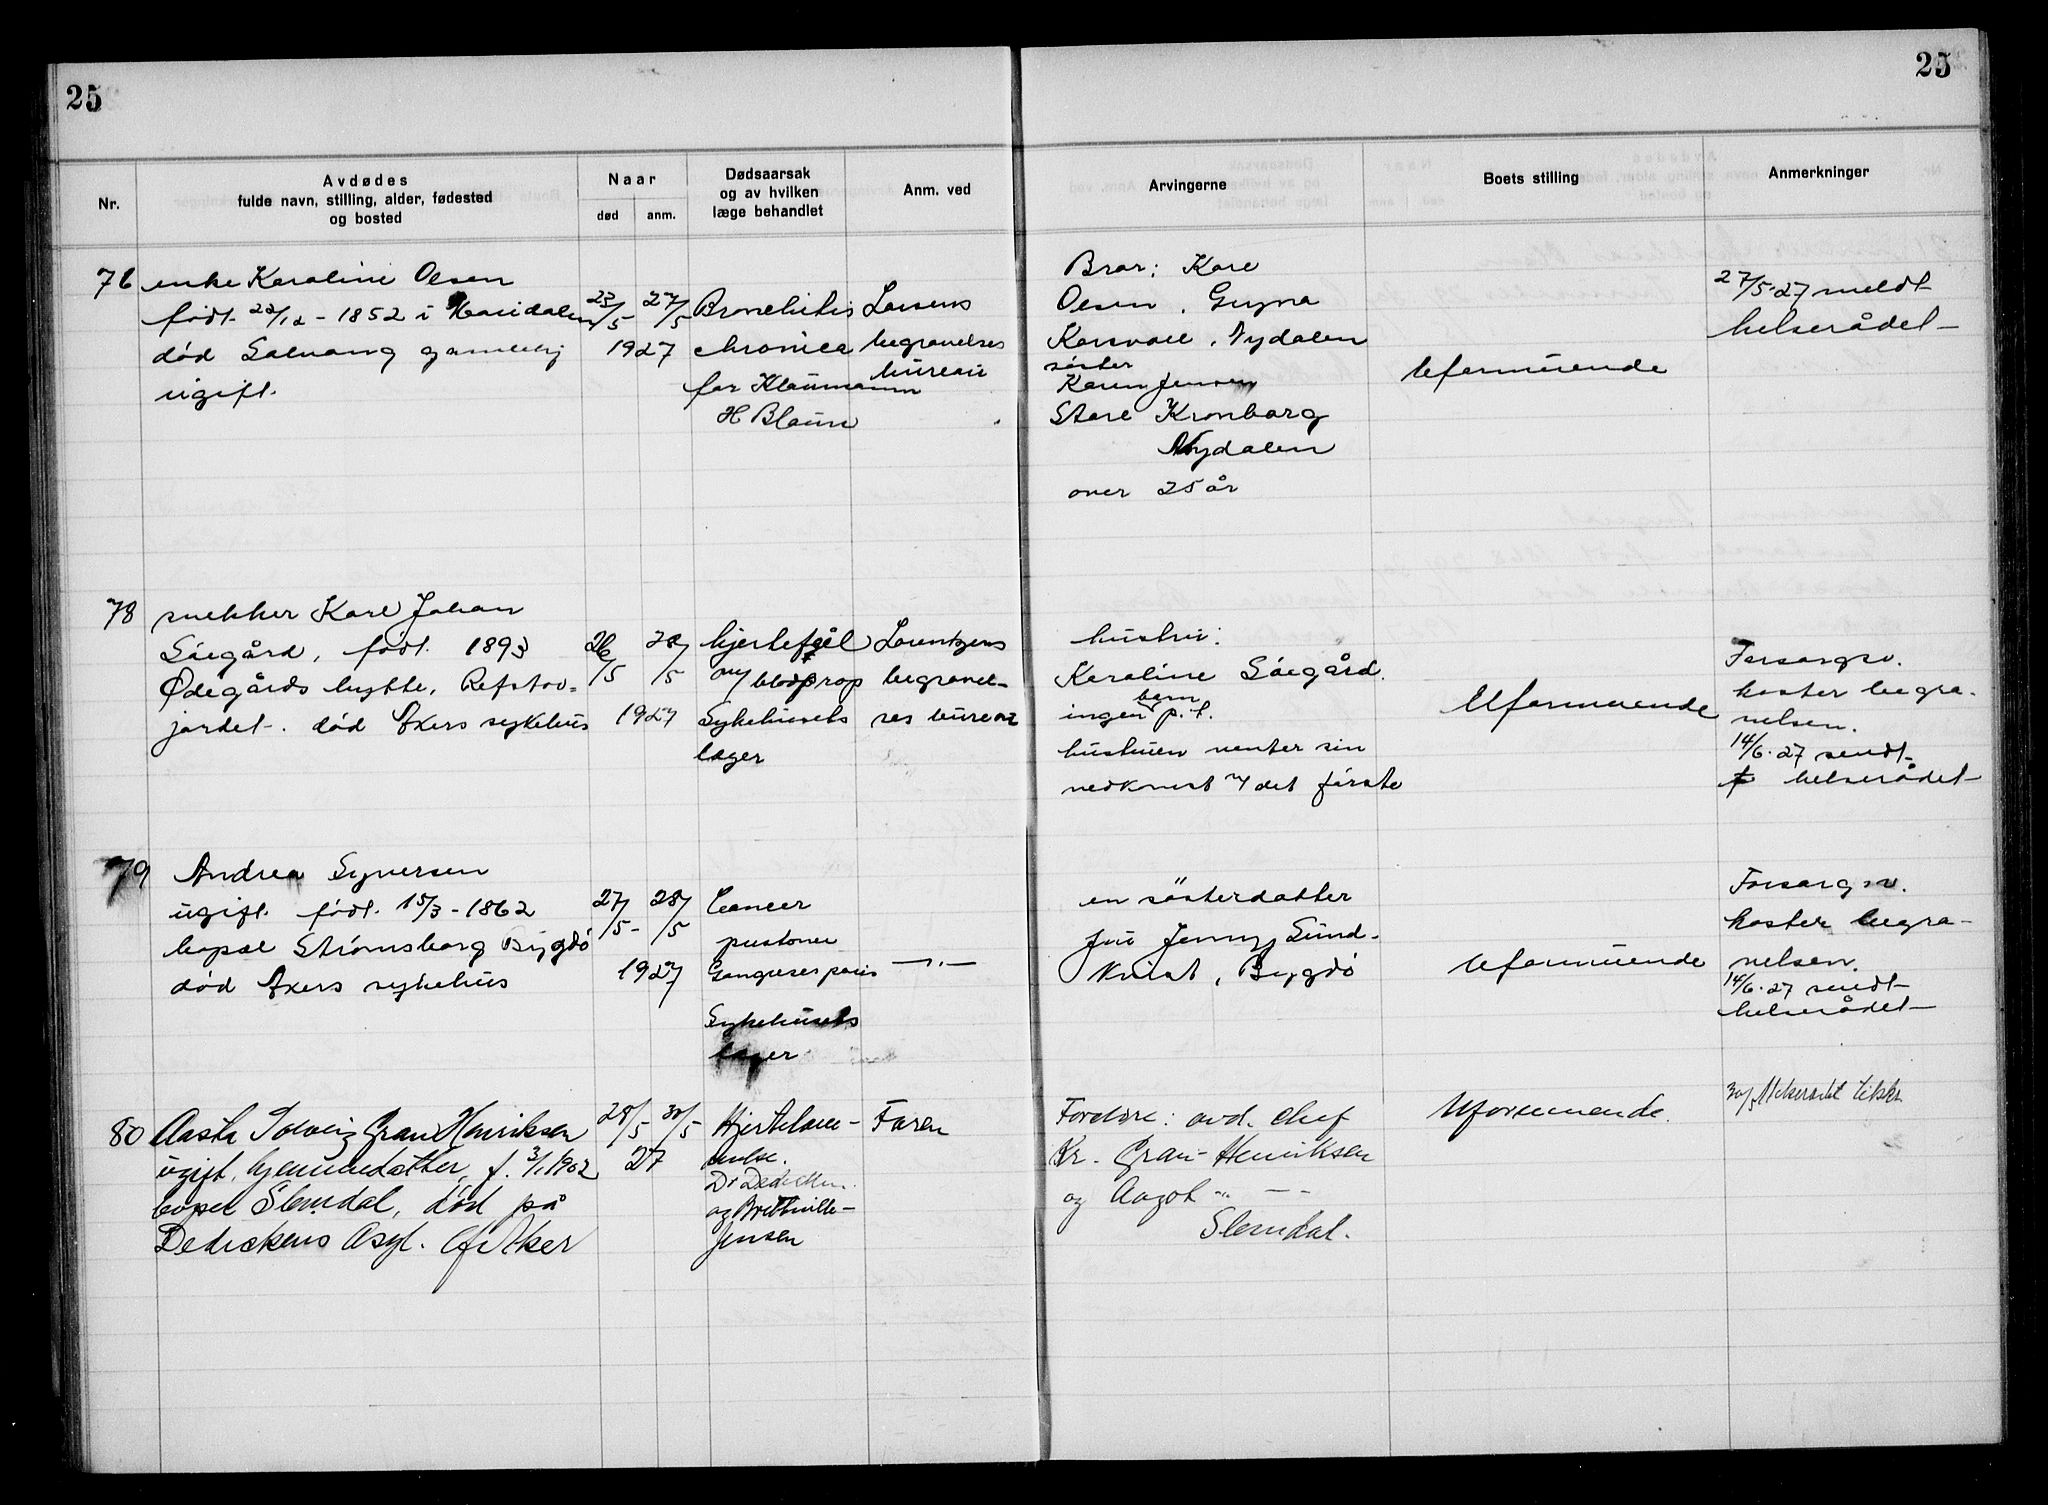 25
25
Nr.
Avdødes
fulde navn, stilling, alder, fødested
og bosted
Naar
død
anm.
Dødsaarsak
og av hvilken
læge behandlet
Anm. ved
Arvingerne
Boets stilling
Anmerkninger
76
enke Karoline Olsen
født 22/12 - 1852 i Maridalen
død Solvang gamlehj
ugift.
23/5 27/5
1927
Bronchitis
chronica
for Klaumann
H Blaun
Larsens
begravelses
bureau
Bror: Karl
Olsen, Gryna
Korsvoll, Nydalen
søster
Karen Jensen
Store Kronborg
Nydalen
over 25 år
Uformuende
27/5.27 meldt
helserådet
78
snekker Karl Johan
Siegård, født 1893
Ødegårds hytte, Refstad-
jordet. død Akers sykehus
26/5 28/5
1927
hjertefeil
m/ blodprop
Sykehusets
læger
Lorentzens
begravel-
ses bureau
hustru:
Karoline Siegård.
ingen barn p.t.
hustruen venter sin
nedkomst m/ det første
Uformuende
Forsorgsv.
koster begra-
velsen.
14/6.27 sendt
helserådet
79
Andrea Syversen
ugift født 15/3 - 1862
bopæl Strømsborg Bygdø
død Akers sykehus
27/5 - 28/5
1927
Cancer
Sykehusets
læger
—"—
en søsterdatter
fru Jenny Sund-
kvist, Bygdø
Uformuende
Forsorgsv.
koster begra-
velsen.
14/6.27 sendt
helserådet
80
Aasta Solveig Gran Henriksen
ugift, hjemmedatter, f. 3/1 1902
bopel Slemdal, død på
Dedickens Asyl. Ø. Aker
28/5 30/5
27
Hjertelam-
melse.
Dr Dedichen
og Brettville-
Jensen
Faren
Foreldre: avd. chef
Kr. Gran-Henriksen
og Aagot -"- —
Slemdal.
Uformuende.
30/5 Helserådet tilskr.